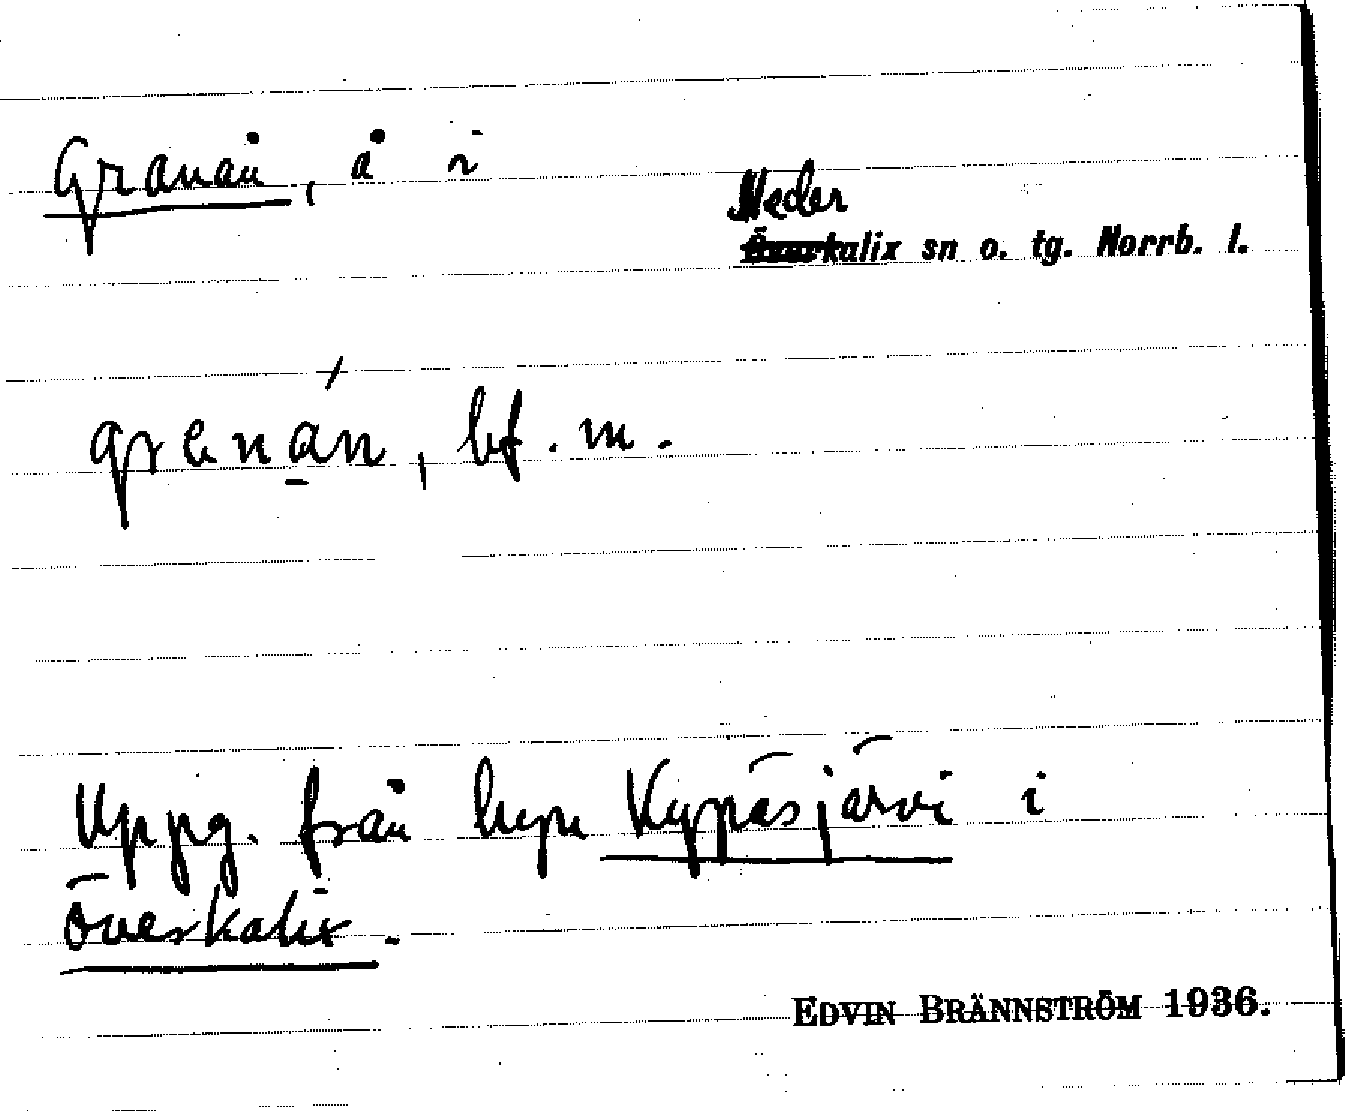 Granån, å i
Neder
kalix sn o. tg. Norrb. l.
grenán, bf. m.
Uppg. från byn Kypäsjärvi i
Överkalix.
EDVIN BRÄNNSTRÖM 1936.